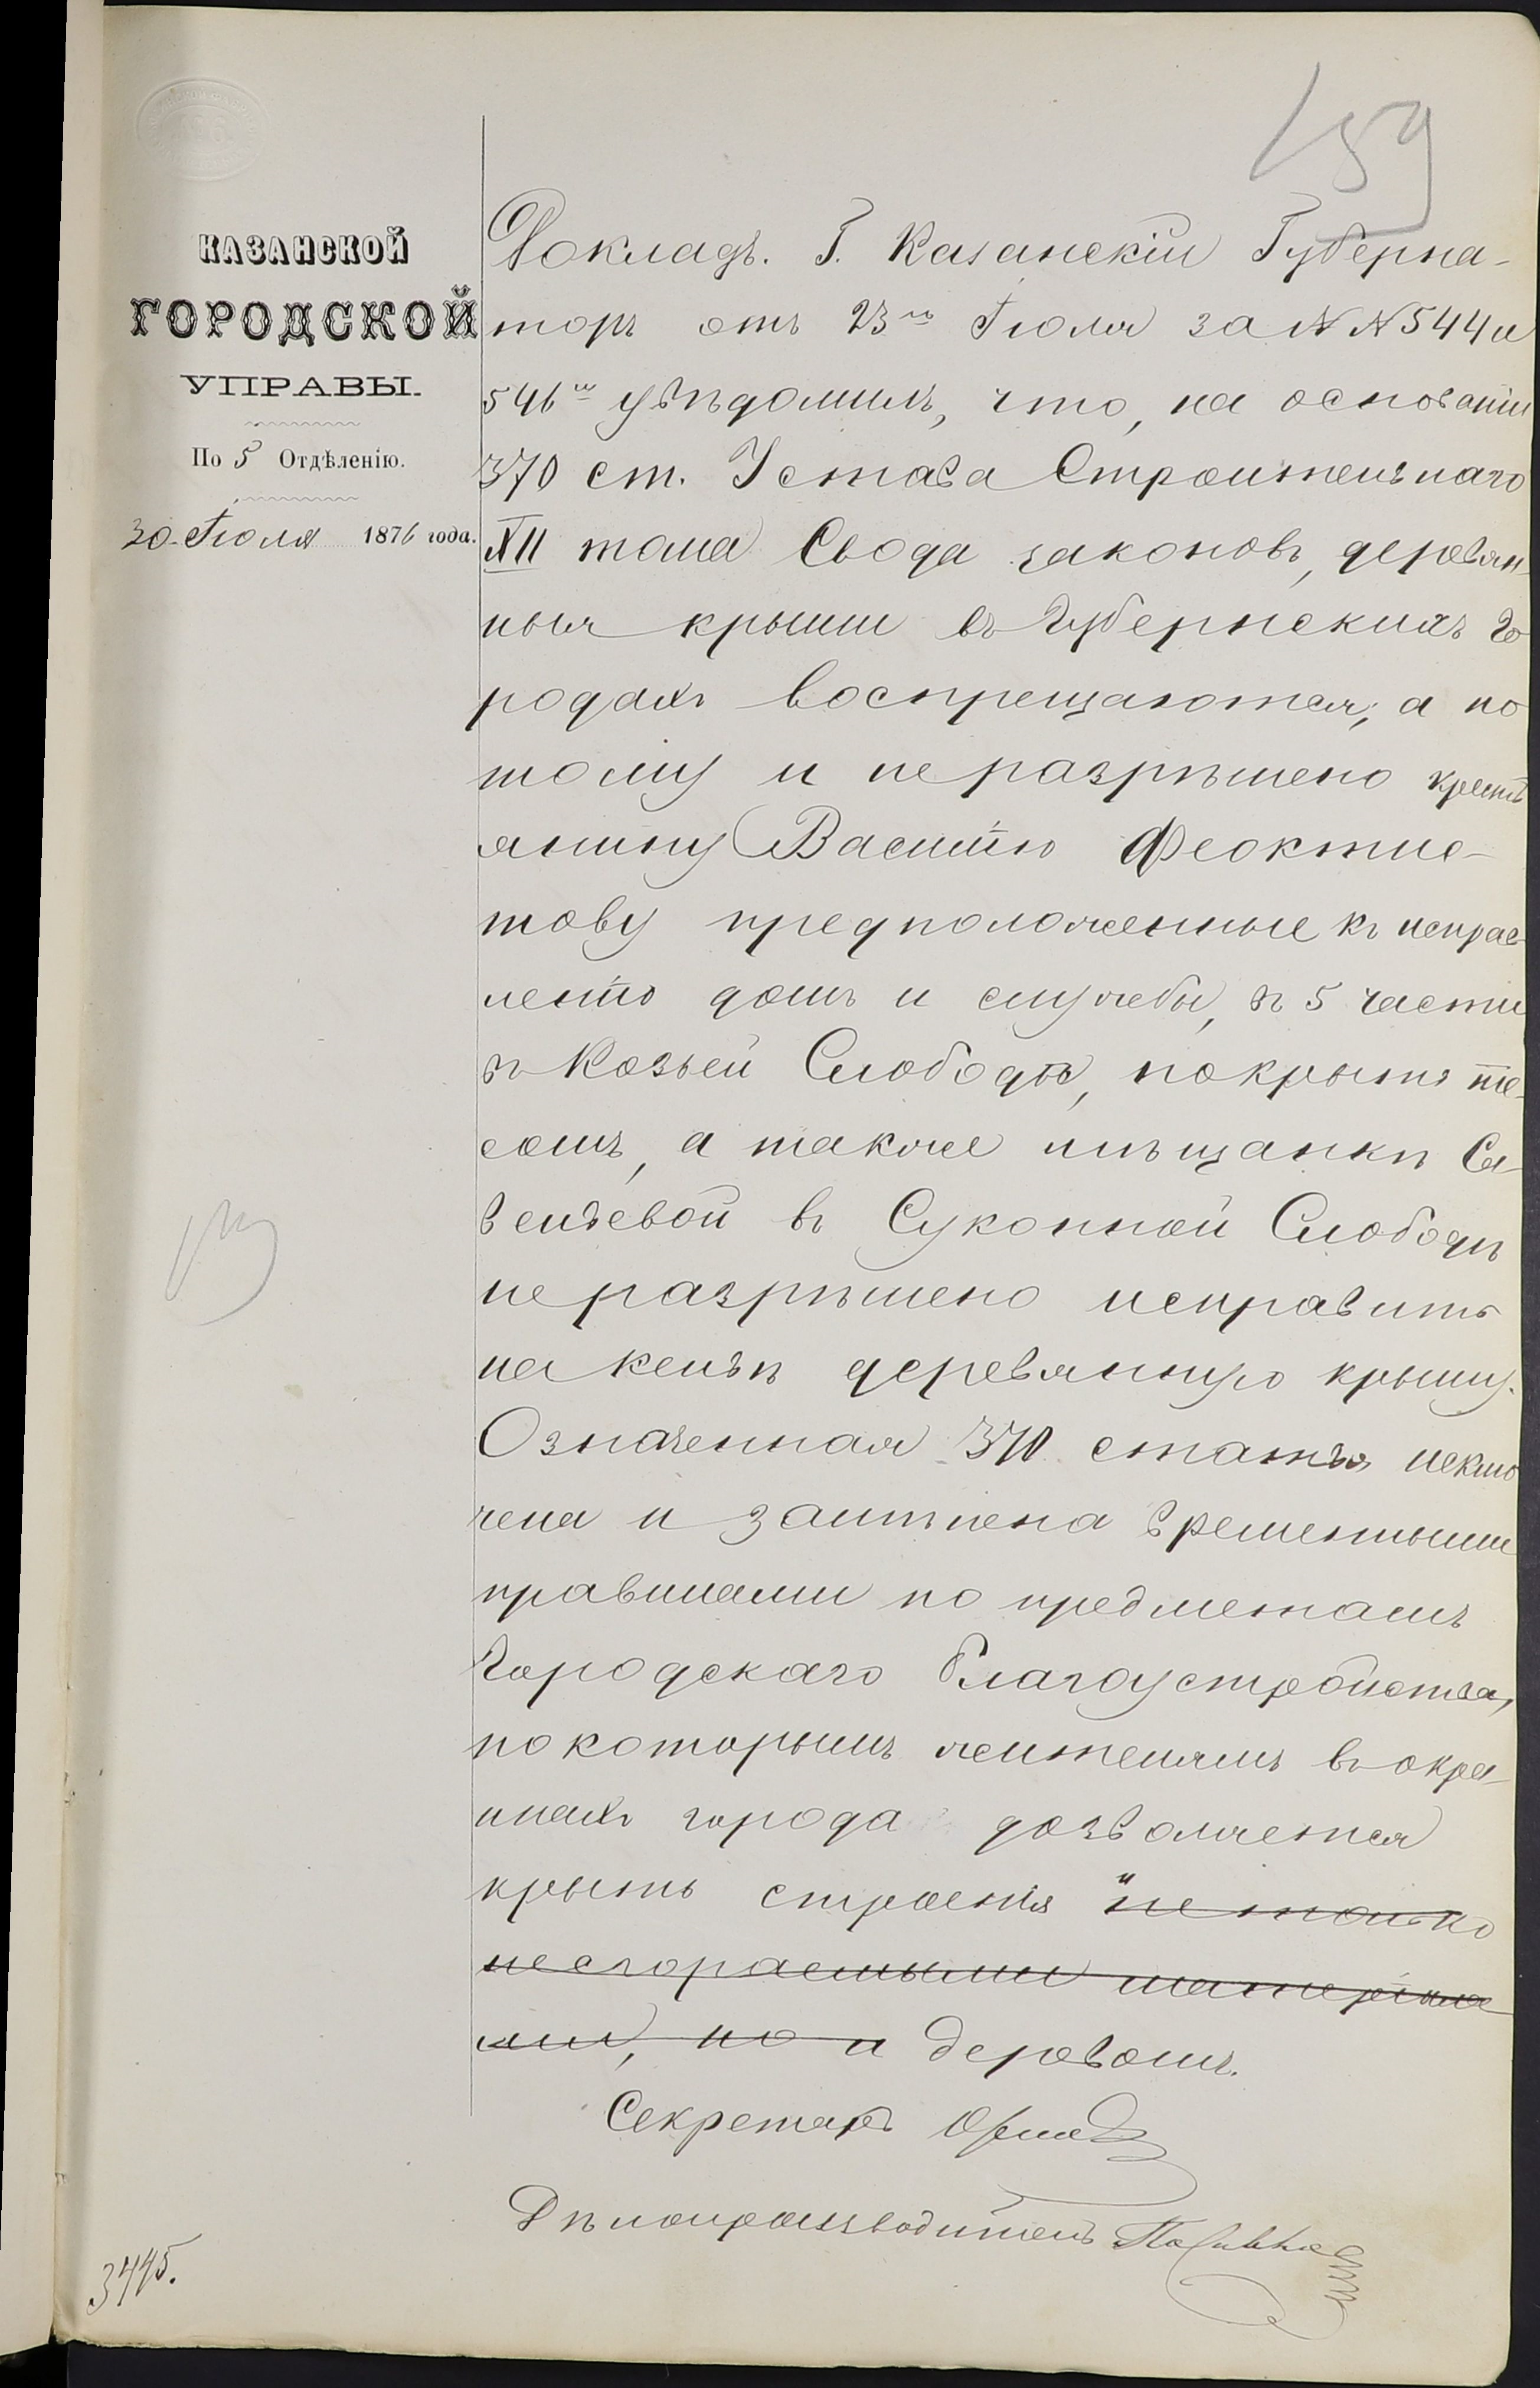 159
КАЗАНСКОЙ
ГОРОДСКОЙ
УПРАВЫ.
По 5 Отдѣленію.
30 Іюля 1876 года.
Докладъ. Г. Казанскій Губерна-
торъ отъ 23го Іюля за №№ 544 и
546м увѣдомилъ, что, на основаніи
370 ст. Устава Строительнаго
XII тома Свода законовъ, деревян-
ныя крыши въ Губернскихъ Го
родахъ воспрещаются, а по
тому и не разрѣшено кресть
янину Василію Феоктис-
тову предположенные къ исправ-
ленію домъ и службы, въ 5 части
въ Козьей Слободѣ, покрыть те-
сомъ, а также мѣщанкѣ Са-
вельевой въ Суконной Слободѣ
не разрѣшено исправить
на кельѣ деревянную крышу.
Означенная 370 статья исклю
чена и замѣнена временными
правилами по предметамъ
городскаго благоустройства,
по которымъ жителямъ въ окра-
инахъ города дозволяется
крыть строенія "не только
несгораемыми матеріала
ми, но и деревомъ.
Секретарь
Дѣлопроизводитель
3445.